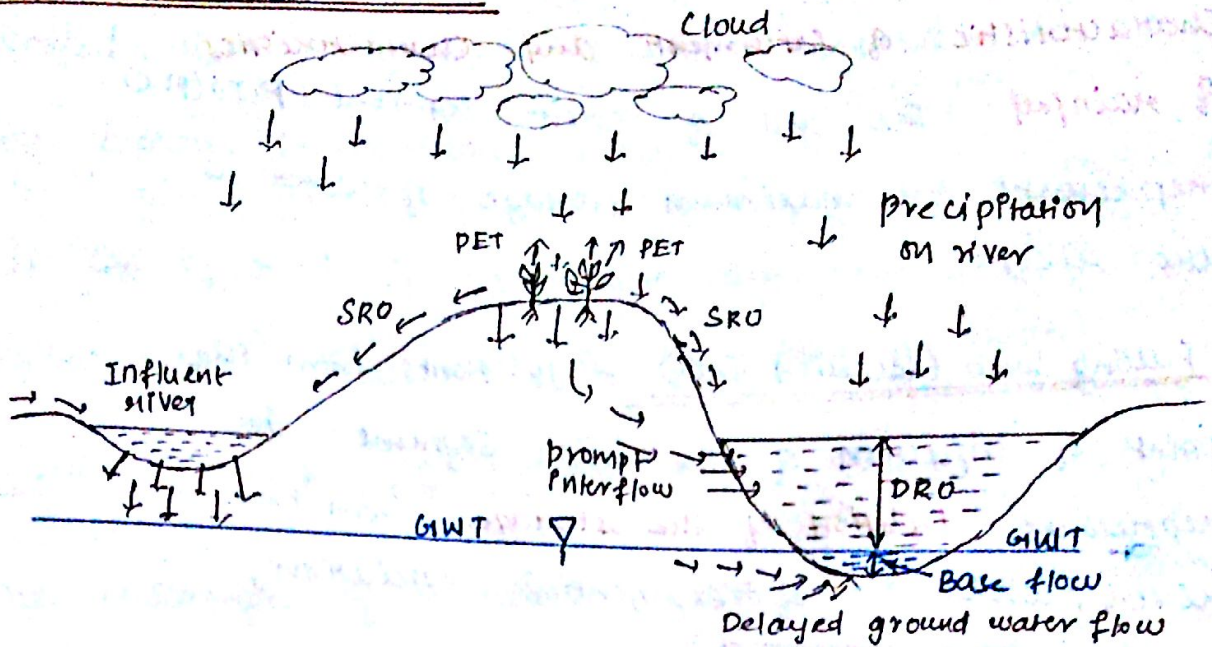 Cloud
precipitation
on river
PET
PET
SRO
SRO
Influent
river
prompt
interflow
DRO
GWT
GWT
Base flow
Delayed ground water flow